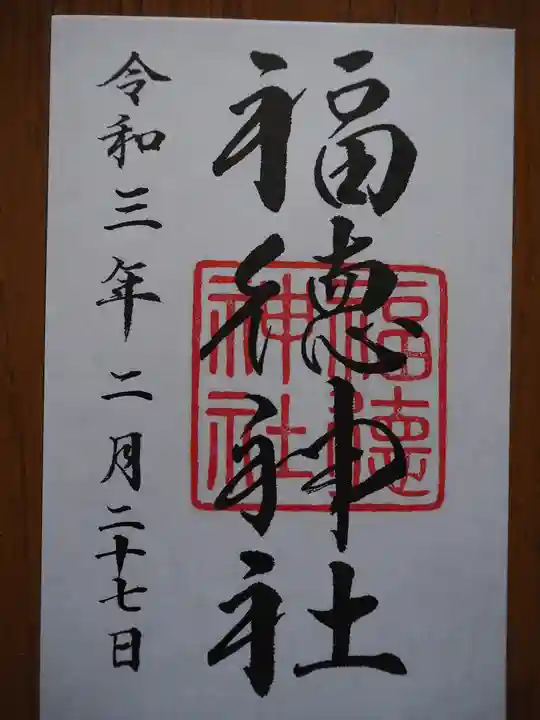 福徳神社
福徳神社
令和三年二月二十七日